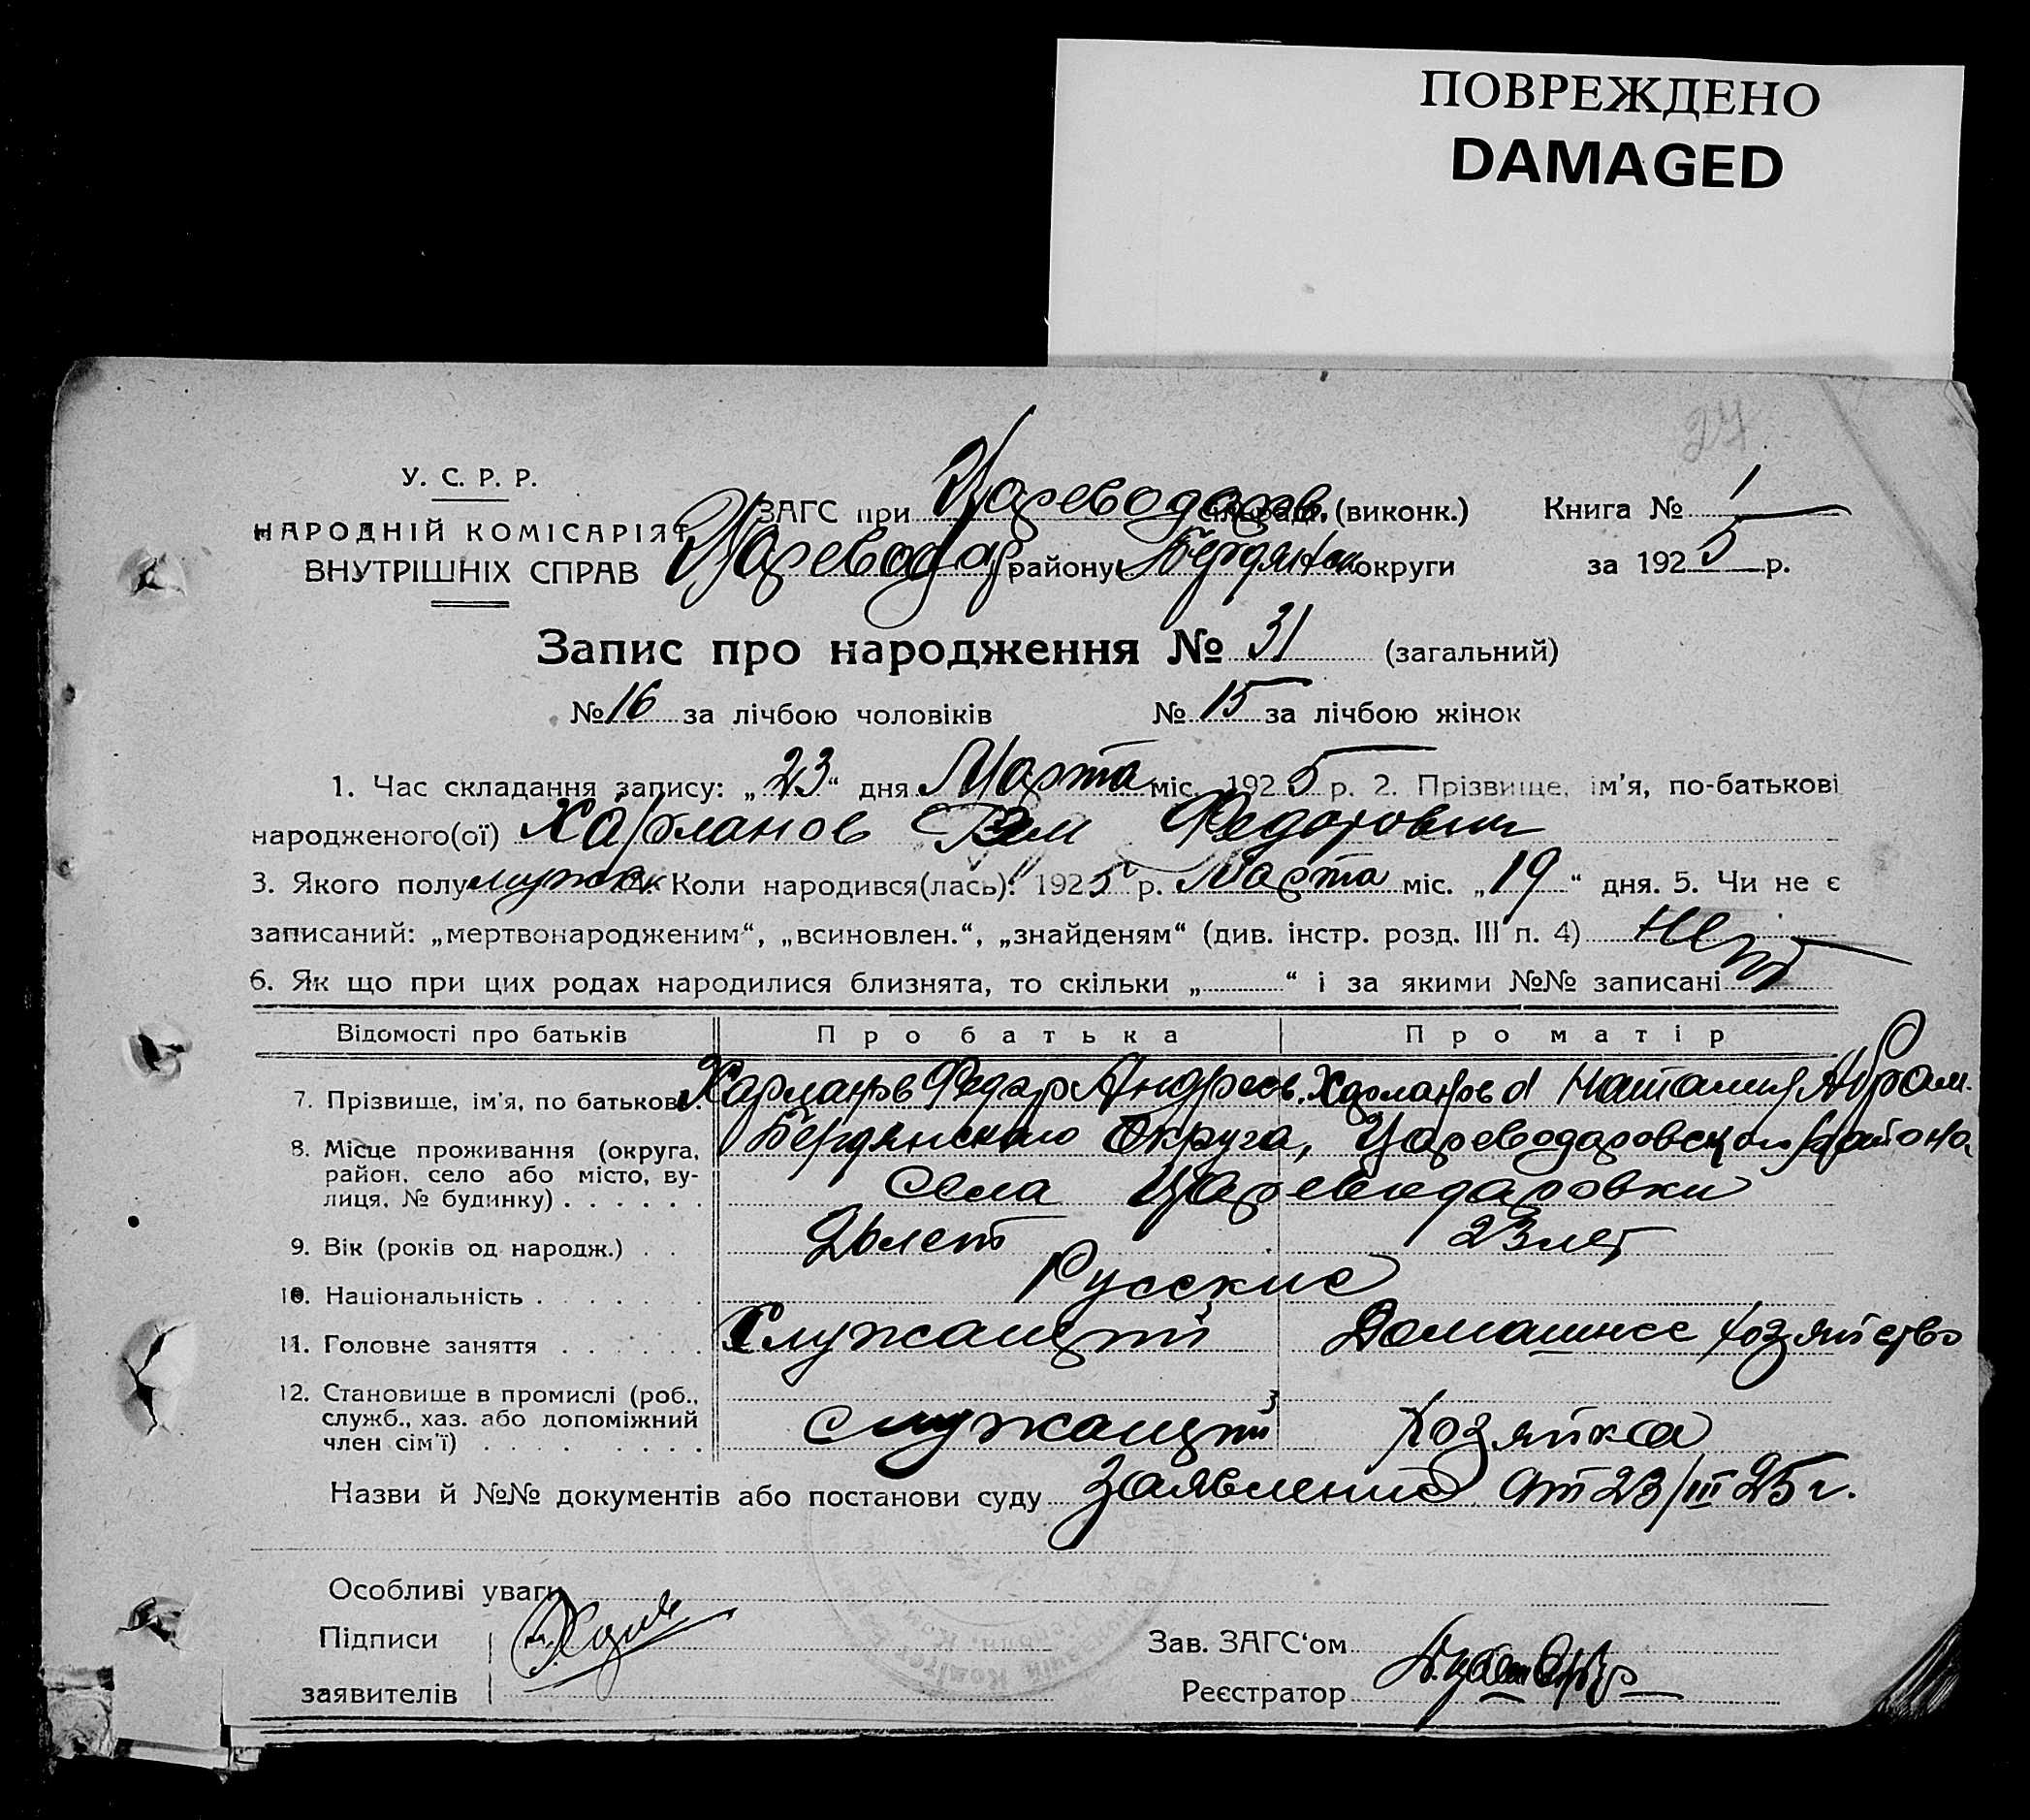 ПОВРЕЖДЕНО
DAMAGED
27
У. С. Р. Р.
НАРОДНІЙ КОМІСАРІЯТ
ВНУТРІШНІХ СПРАВ
ЗАГС при Цареводаров. сільраді, (виконк.)
Цареводар району Бердянськ округи
Книга № 1
за 1925 р.
Запис про народження № 31 (загальний)
№ 16 за лічбою чоловіків № 15 за лічбою жінок
1. Час складання запису: „23“ дня Марта міс. 1925 р. 2. Прізвище, ім’я, по-батькові
народженого(ої) Харланов Федорович
3. Якого полу мужск Коли народився(лась): 1925 р. Марта міс. „19“ дня. 5. Чи не є
записаний: „мертвонародженим“, „всиновлен.“, „знайденям“ (див. інстр. розд. III п. 4) Нет
6. Як що при цих родах народилися близнята, то скільки „ “ і за якими №№ записані
Відомості про батьків Про батька Про матір
7. Прізвище, ім’я, по батькові. Харланов Федор Андреев. Харланова Наталия Абрам.
8. Місце проживання (округа, Бердянского Округа, Цареводаровского района
район, село або місто, ву-
лиця, № будинку) . . . . . . Села Цареводаровки
9. Вік (років од народж.) . . лет 23 лет
10. Національність . . . . . . Русские
11. Головне заняття . . . . . . Служащий Домашнее хозяйство
12. Становище в промислі (роб.,
служб., хаз. або допоміжний
член сім’ї) . . . . . . . . служащий хозяйка
Назви й №№ документів або постанови суду Заявление от 23/III 25 г.
Особливі уваги
Підписи
заявителів
Зав. ЗАГС‘ом
Реєстратор